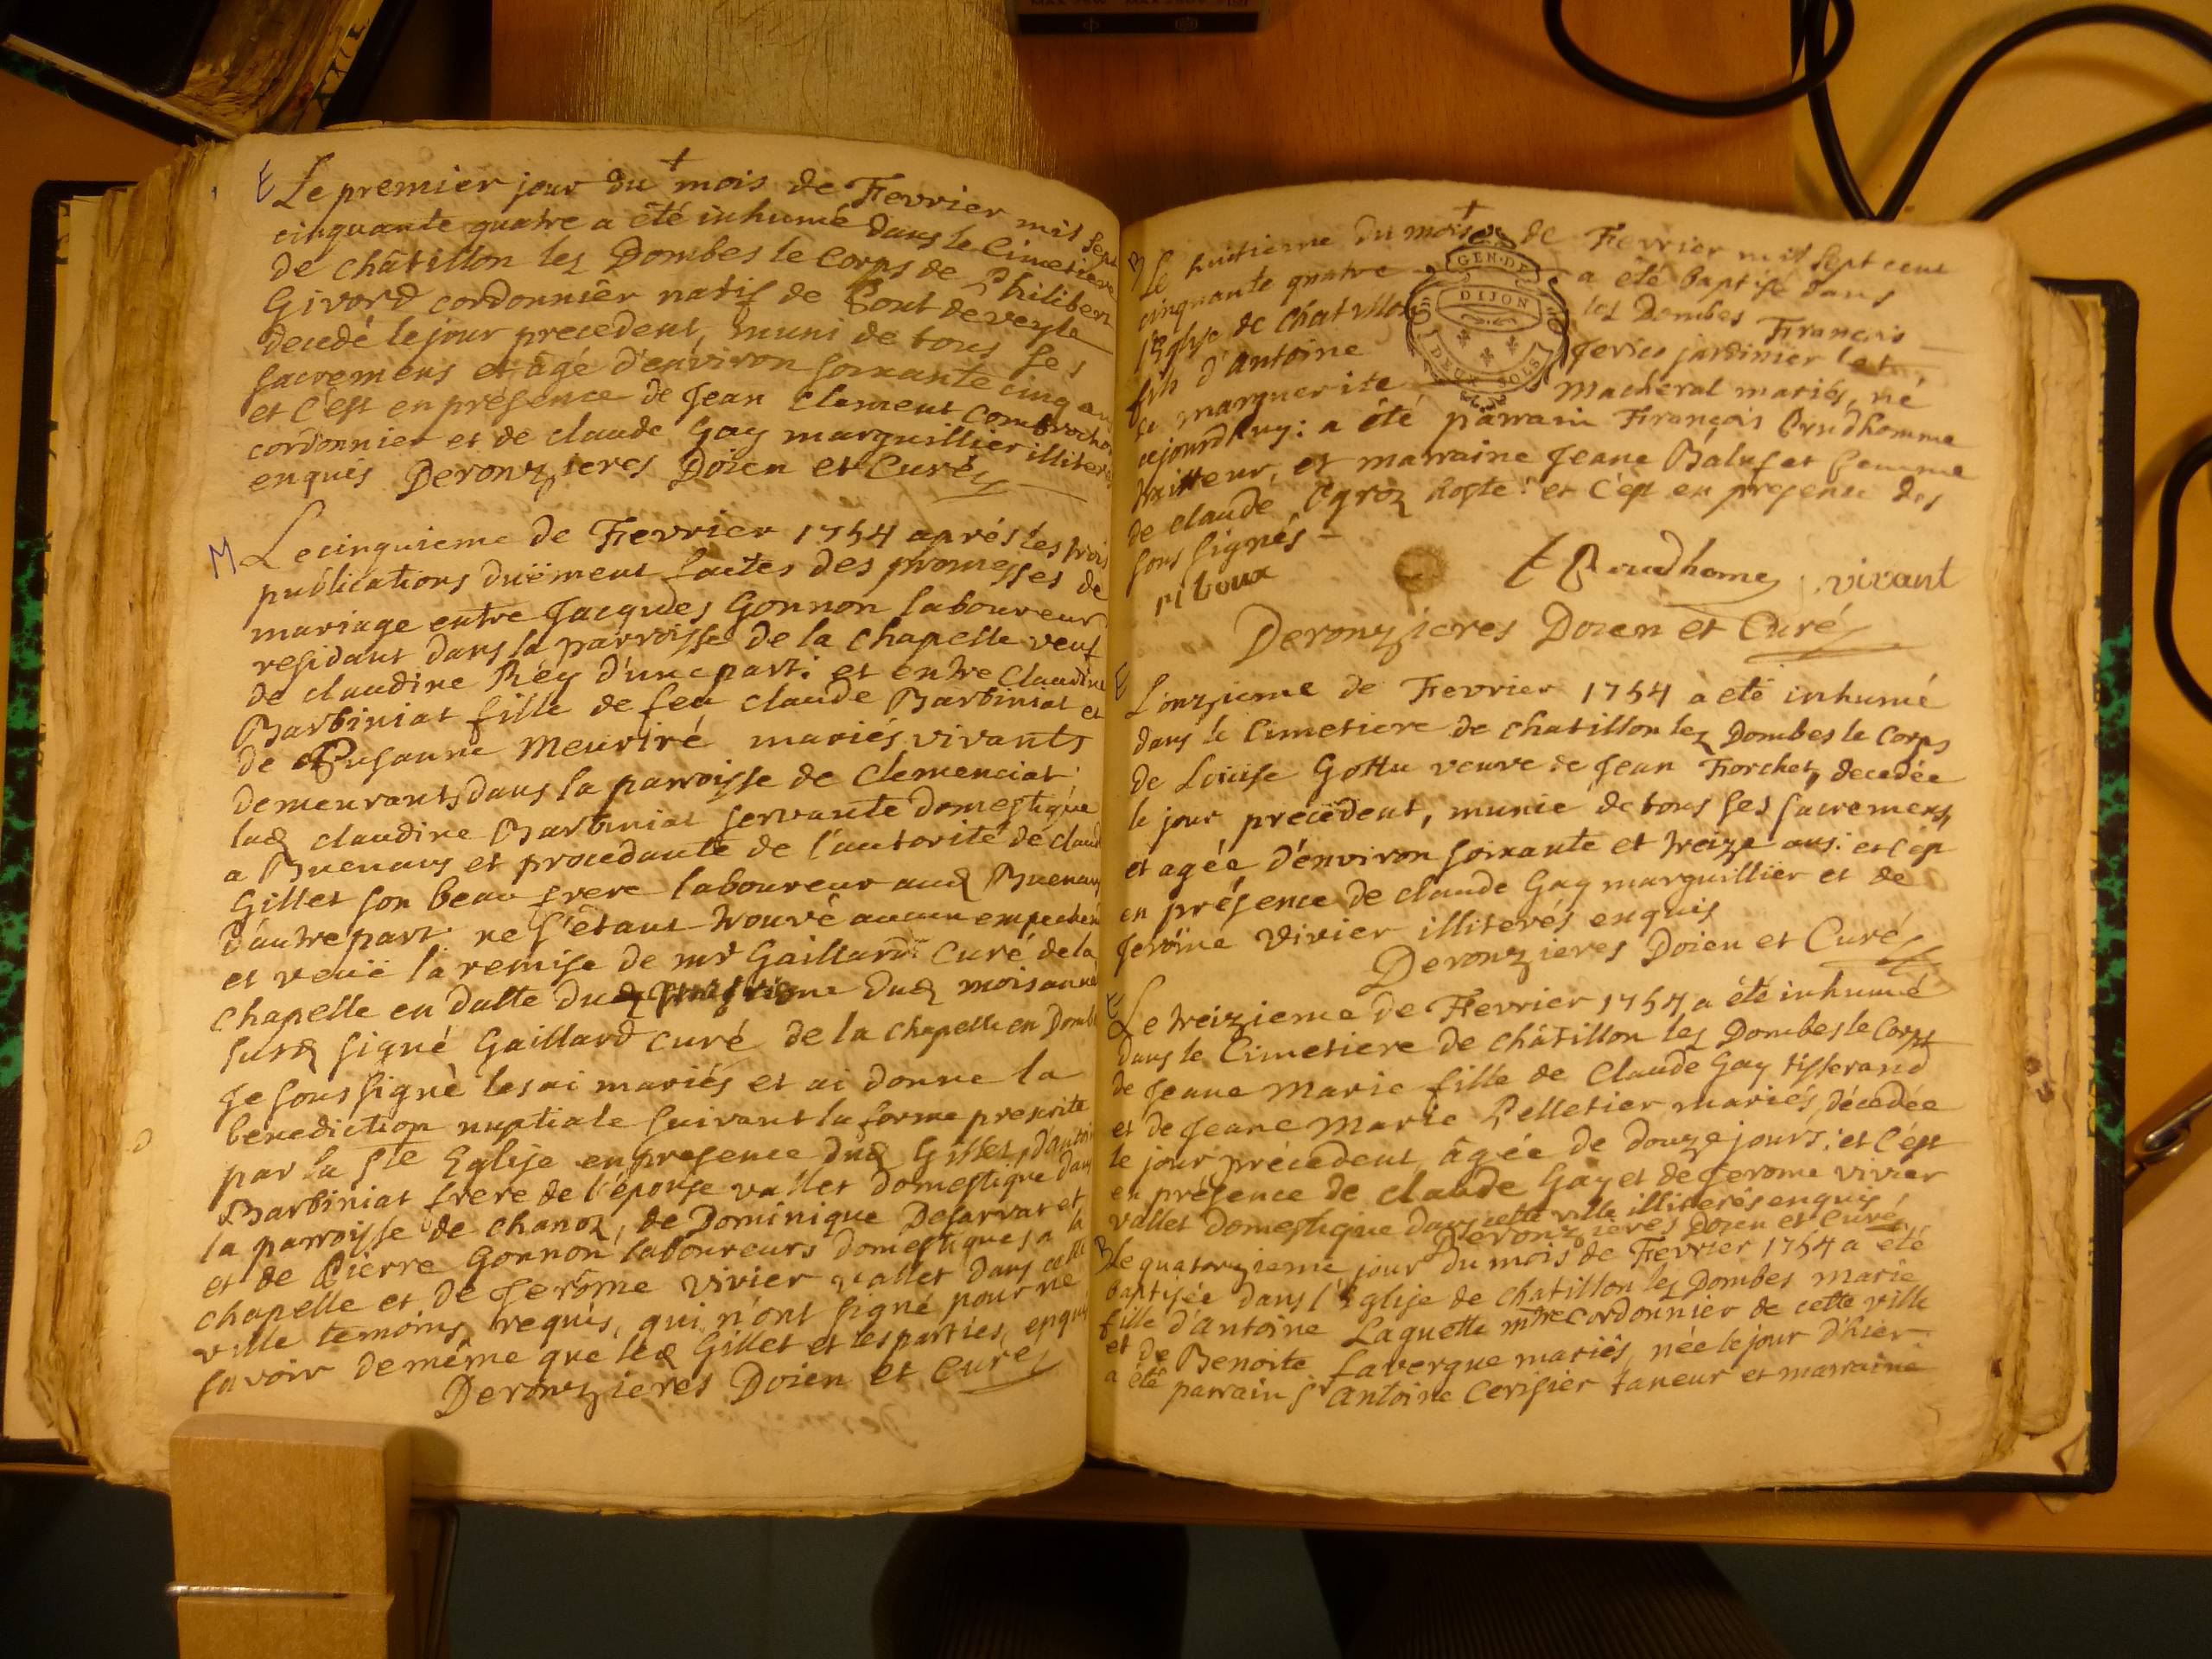 E Le premier jour du mois de Fevrier mil sept
cinquante quatre a été inhumé dans le Cimetiere
de châtillon lez Dombes le Corps de Philibert
Givord cordonnier natif de Pont de veyle
decedé le jour precedent, muni de tous ses
sacremens et âgé d'environ soixante cinq ans
et c'est en présence de Jean Clement
cordonnier et de claude Gay marguillier illiterés
enquis Deronzieres Doien et Curé
M Le cinquieme de Fevrier 1754 aprés les trois
publications duëment faites des promesses de
mariage entre Jacques Gonnon laboureur
residant dans la parroisse de la chapelle veuf
de claudine Rey d'une part: et entre Claudine
Barbiniat fille de feu claude Barbiniat et
de Susanne Meuriré mariés vivants
demeurants dans la parroisse de Clemenciat
lad claudine Barbiniat servante domestique
a Buenans et procedante de l'autorité de claud
Gillet son beau frere laboureur aud Buenans
d'autre part: ne s'étant trouvé aucun empechem
et veuë la remise de mr Gaillard Curé de la
Chapelle en datte dud dud mois année
susd signé Gaillard curé de la Chapelle en Domb
Je soussigné les ai mariés et ai donne la
benediction nuptiale suivant la forme prescrite
par la Ste Eglise en presence dud Gillet, d'antoi
Barbiniat frere de l'épouse vallet domestique dans
la parroisse de chanoz, de Dominique Desarvar et
et de Pierre Gonnon laboureurs domestiques a la
chapelle et de Jerôme vivier vallet dans cette
ville temoins requis, qui n'ont signé pour ne
savoir de même que led Gillet et les parties, enqui
Deronzieres Doien et Curé
B Le huitieme du mois de Fevrier mil sept cent
cinquante quatre a été baptisé dans
l'Eglise de Chatillon lez Dombes François
fils d'Antoine Jerics jardinier
et marguerite Macheral mariés, né
cejourdhuy: a été parrain François Prudhomme
traitteur, et marraine Jeane Baluset femme
de claude Ogroz hoste: et c'est en presence des
sous signés
riboux F Prudhome vivant
Deronzieres Doien et Curé
GEN. DE
DIJON
DEUX SOLS
E L'onzieme de Fevrier 1754 a eté inhumé
dans le Cimetiere de chatillon lez Dombes le Corps
de Loüise Gottu veuve de Jean Forchet, decedée
le jour precedent, munie de tous ses sacremens,
et agée d'environ soixante et treize ans: et c'est
en présence de claude Gay marguillier et de
Jerôme Vivier illiterés enquis
Deronzieres Doien et Curé
E Le treizieme de Fevrier 1754 a été inhumé
dans le Cimetiere de châtillon lez Dombes le Corps
de Jeane Marie fille de Claude Gay tisserand
et de Jeane Marie Pelletier mariés, décedée
le jour précedent, âgée de douze jours: et c'est
en présence de claude Gay et de Jerome vivier
vallet domestique dans cette ville illiterés enquis
Deronzieres Doien et Curé
B Le quatorzieme jour du mois de Fevrier 1754 a été
baptisée dans l'Eglise de chatillon lez Dombes marie
fille d'Antoine Laguette mtre Cordonnier de cette ville
et de Benoite Lavergne mariés, née le jour d'hier
a été parrain Sr Antoine Cerisier taneur et marraine